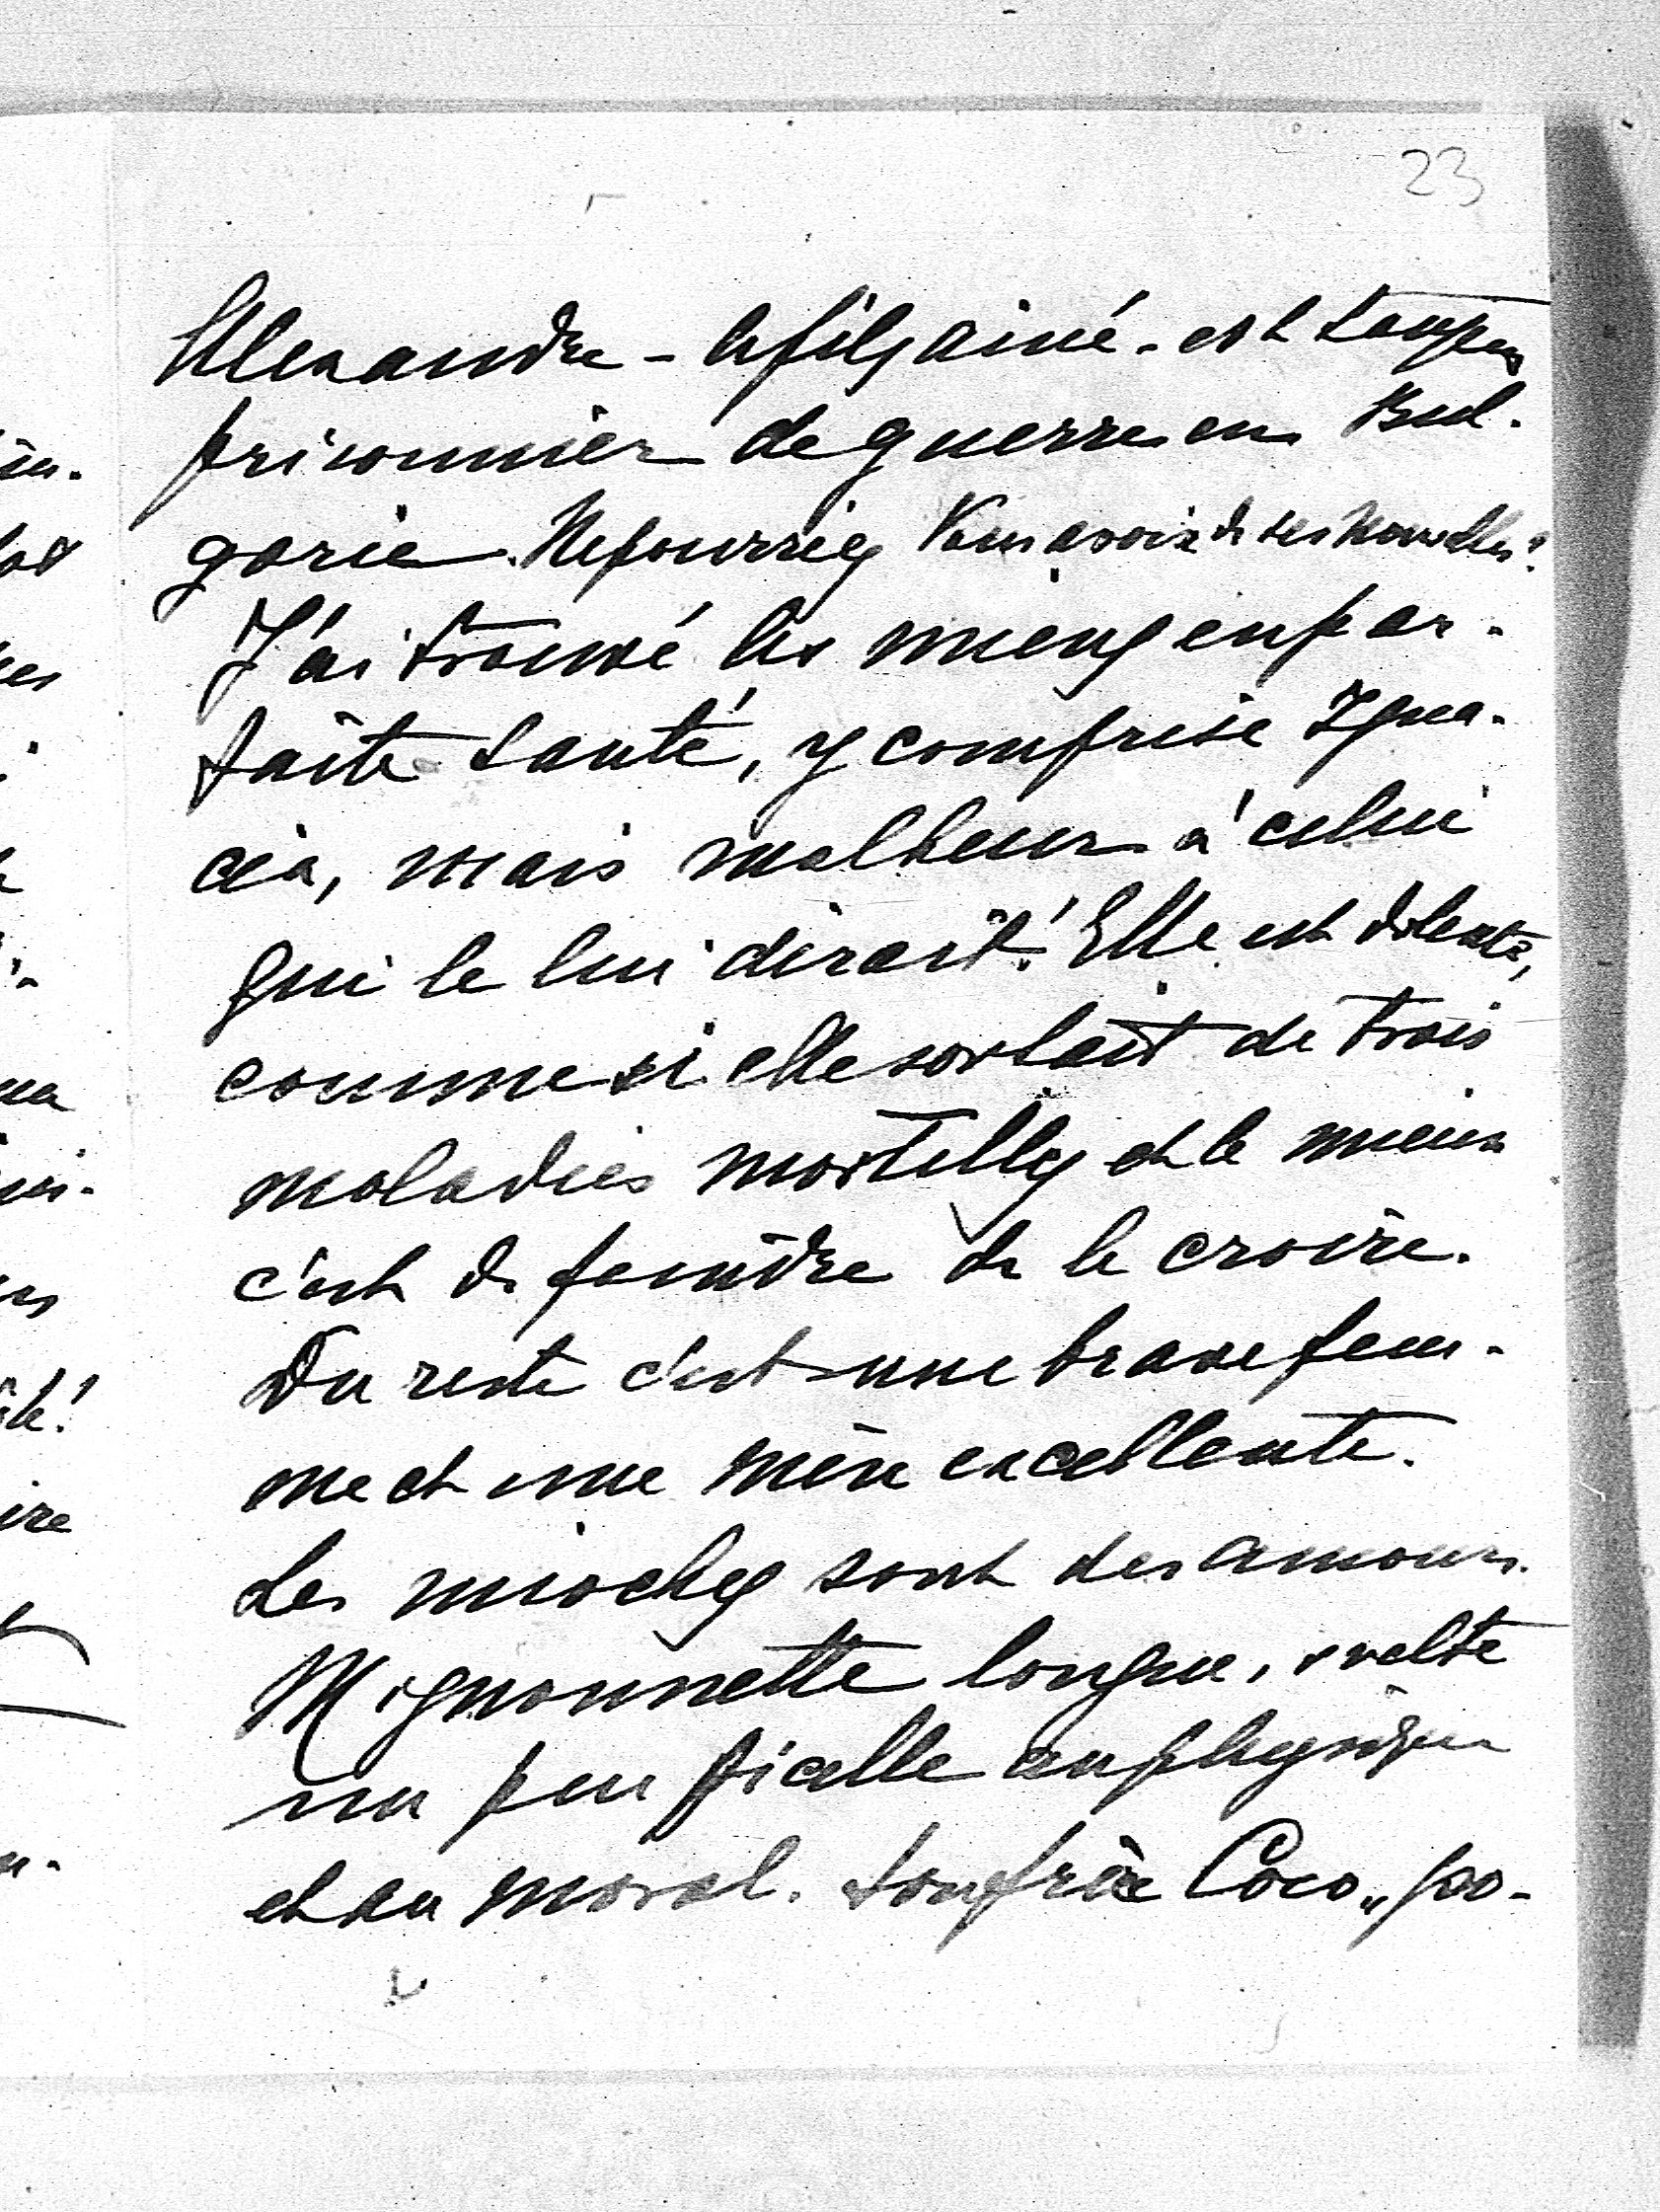 23
Alexandre - le fils ainé - est toujours
prisonnier de guerre en Bul-
garie. Ne pourriez Vous avoir de ses nouvelles?
J'ai trouvé les miens en par-
faite santé, y comprise Igna-
cia, mais malheur à celui
qui le lui dirait! Elle est dolente,
comme si elle sortait de trois
maladies mortelles et le mieux
c'est de feindre de le croire.
Du reste c'est une brave fem-
me et une mère excellente.
Les mioches sont des amours.
Mignonnette longue, svelte
un peu ficelle au physique
et au moral. Son frère Coco „po-